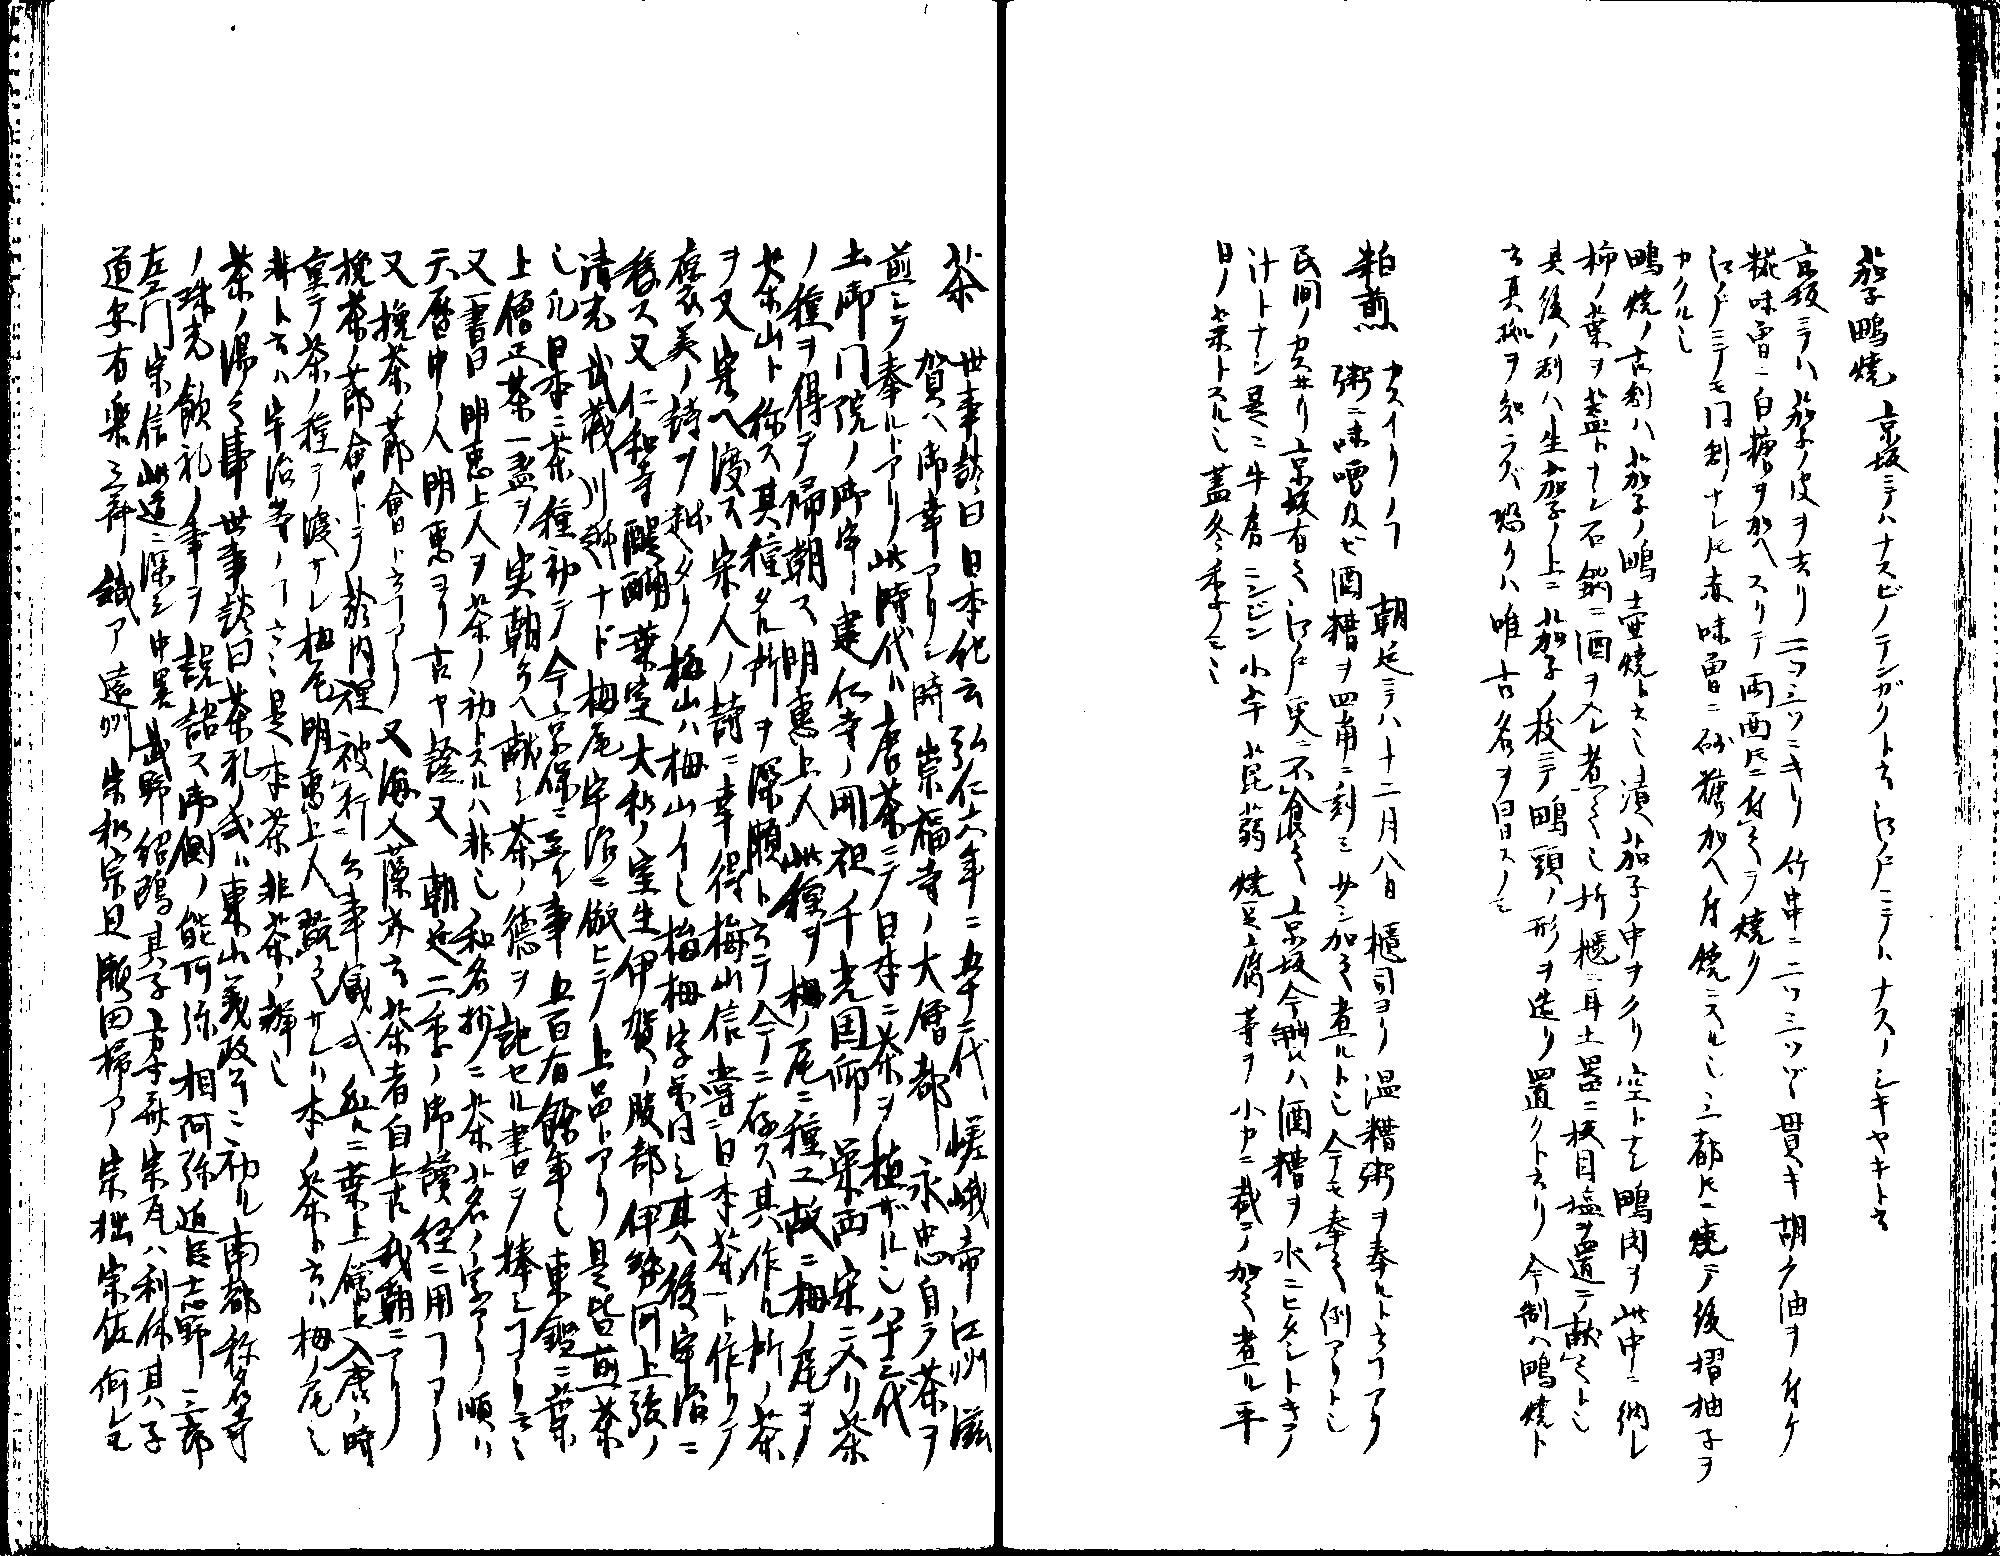 茄子鴫焼 京坂ニテハナスビノテンガクト云江戸ニテハナスノシギヤキト云
京坂ニテハ茄子ノ皮ヲ去リ二ツ三ツニキリ竹串ニ二ツ三ツヅヽ貫キ胡マ油ヲ付ケ
糀味曽ニ白糖ヲ加ヘスリテ両面トモニ付之テ焼ク
江戸ニテモ同制ナレトモ赤味曽ニ砂糖加ヘ付焼ニスル也三都トモニ焼テ後摺柚子ヲ
カクル也
鴫焼ノ古制ハ茄子ノ鴫壷焼ト云也漬茄子ノ中ヲクリ空トナシ鴫肉ヲ此中ニ納レ
柿ノ葉ヲ蓋トナシ石鍋ニ酒ヲ入レ煮之也折櫃ニ耳土器ニ板目塩ヲ置テ献之ト也
其後ノ制ハ生茄子ノ上ニ茄子ノ枝ニテ鴫頭ノ形ヲ造リ置クト云リ今制ヘ鴫焼ト
云其拠ヲ知ラズ恐クハ唯古名ヲ曰スノミ
粕煎 カスイリノコ 朝廷ニテハ十二月八日櫃司ヨリ温糟粥ヲ奉ルト云コアリ
粥ニ味噌及ビ酒糟ヲ四角ニ刻ミサン加之煮ルト也今モ奉之例アリト也
民間ノカス井リ京坂有之江戸更ニ不食之京坂今制ハ酒糟ヲ水ニヒタシトキテ
汁トナシ是ニ牛房ニンジン小芋蒟蒻焼豆腐等ヲ小カニ裁テ加之煮ル平
日ノ菜トスル也蓋冬季ノミ也
茶 世事談曰日本紀云弘仁六年ニ五十二代嵯峨帝江州滋
賀ヘ御幸アリシ時崇福寺ノ大僧都永忠自ラ茶ヲ
煎シテ奉ルトアリ此時代ハ唐茶ニテ日本ニ茶ヲ植ザル也八十三代
土御門院ノ御宇建仁寺ノ開祖千光国師栄西宋ニ入リ茶
ノ種ヲ得テ帰朝ス明恵上人此種ヲ栂ノ尾ニ種エ故ニ栂ノ尾ヲ
茶山ト称ス其種タル所ヲ深瀬ト云テ今ニ存ス其作ル所ノ茶
ヲ又宋ヘ渡ス宋人ノ詩ニ幸得梅山信嘗日本茶ト作リテ
褒美ノ詩ヲ越タリ梅山ハ栂山也梅栂字
移ス又仁和寺醍醐葉室大和ノ室生伊賀ノ服部伊勢河上駿ノ
清見武蔵川越ナド栂尾宇治ニ倣ヒテ上品トアリ是皆煎茶
也凡日本ニ茶種初テ今京保ニ至ル事五百有餘年也東鑑ニ葉
上僧正茶一盞ヲ実朝公ヘ献シ茶ノ徳ヲ記セル書ヲ捧シコアリ云々
又一書曰明恵上人ヲ茶ノ初トスルハ非也和名抄ニ茶茗ノ字アリ順ハ
天暦中ノ人明恵ヨリ古キ證又朝廷二季ノ御讀経ニ用フアリ
又挽茶ノ節會ト云コアリ又海人藻芥云茶者自上古我朝ニアリ
挽茶ノ節會トテ於内裡被行公事儀式 葉上僧正入唐ノ時
重テ茶ノ種ヲ渡サレ栂尾明恵上人 本ノ茶ト云ハ栂ノ尾也
非ト云ハ宇治等ノコ云々是本茶非茶ノ辨也
茶ノ湯之事世事談曰茶礼ノ式ハ東山義政公ニ初ル南都称名寺
ノ珠光飲礼ノ事ヲ説諸ス御側ノ能阿弥相阿弥近臣志野三郎
左エ門宗信此道ニ深シ中畧武野紹鴎其子 宗瓦ハ利休其子
道安有楽三斎織ア遠州宗和宗旦瀬田掃ア宗拙宗佐何レモ